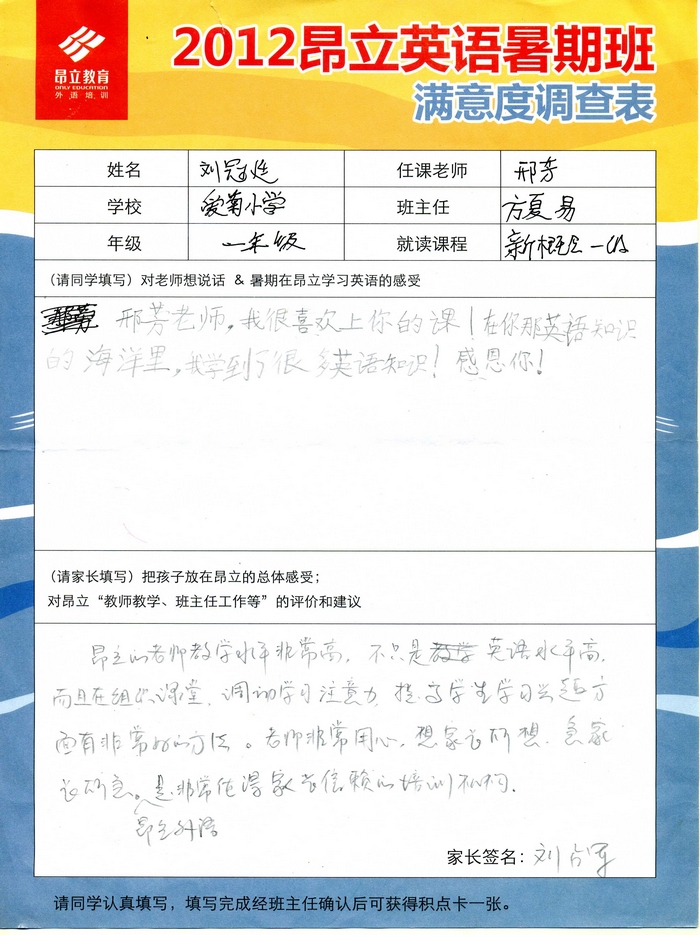 昂立教育
ONLY EDUCATION
外语培训
2012昂立英语暑期班
满意度调查表
姓名 刘冠廷 任课老师 邢芳
学校 爱菊小学 班主任 方夏易
年级 一年级 就读课程 新概念一
(请同学填写)对老师想说话 & 暑期在昂立学习英语的感受
邢芳老师,我很喜欢上你的课!在你那英语知识
的海洋里,我学到了很多英语知识!感恩你!
(请家长填写)把孩子放在昂立的总体感受;
对昂立“教师教学、班主任工作等”的评价和建议
昂立的老师教学水平非常高,不只是英语水平高,
而且在组织课堂、调动学习注意力、提高学生学习兴趣方
面有非常好的方法。老师非常用心,想家长所想,急家
长所急。昂立外语是非常值得家长信赖的培训机构.
家长签名:刘占军
请同学认真填写,填写完成经班主任确认后可获得积点卡一张。